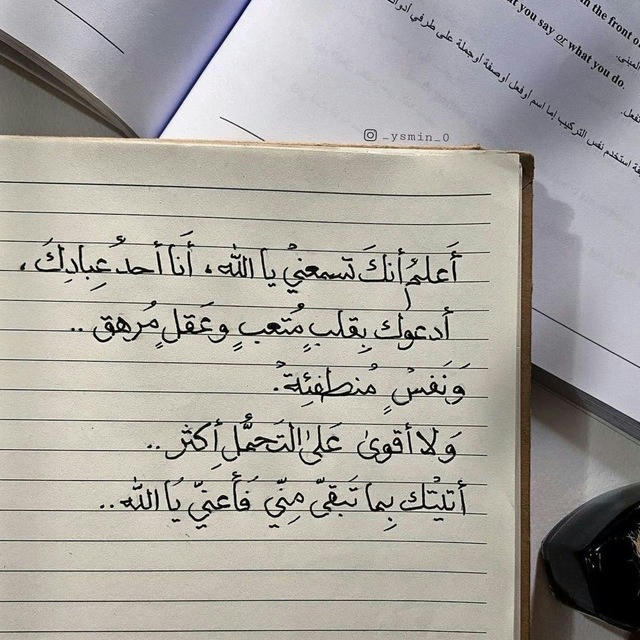 in the front o
t you say or what you do.
_ysmin_0
أَعلمُ أنكَ تسمعني يا الله ، أَنا أحدُ عِبادِكَ ،
أدعوك بِقلبٍ مُتعبٍ وعَقلٍ مُرهق ..
وَنَفسٍ مُنطفئِة.
وَلا أقوىٰ عَلىٰ التَحمُّل أكثر ..
أتيتك بِما تَبقىّ مِنّي فَأَعنيّ يَا الله ..